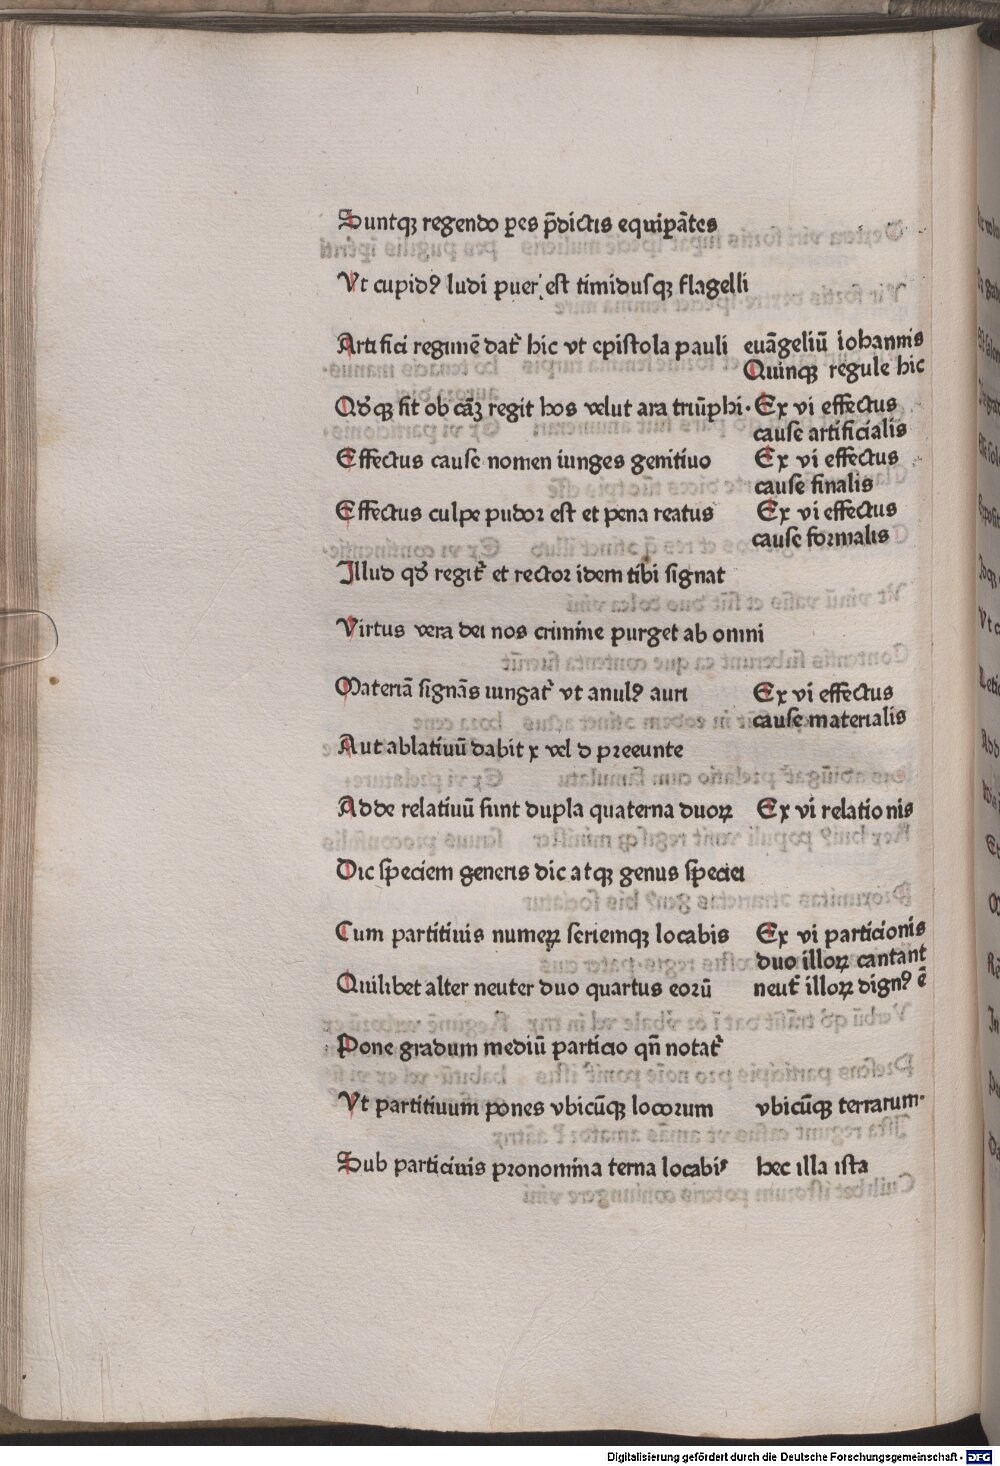 Suntqꝫ regendo ꝑes p̄dictis equiꝑātes
Vt cupidꝰ ludi puer est timidusqꝫ flagelli
Artifici regimē dat᷑ hic vt epistola pauli euāgeliū iohannis
Quinqꝫ regule hic
Qd̕qꝫ fit ob cāꝫ regit hos velut ara triūphi. Ex vi effectus
cause artificialis
Effectus cause nomen iunges genitiuo Ex vi effectus
cause finalis
Effectus culpe pudor est et pena reatus Ex vi effectus
cause formalis
Illud qd̕ regit᷑ et rector idem tibi signat
Virtus vera dei nos crimine purget ab omni
Materiā signās iungat᷑ vt anulꝰ auri Ex vi effectus
cause materialis
Aut ablatiuū dabit x vel d preeunte
Adde relatiuū sunt dupla quaterna duoꝝ Ex vi relationis
Dic speciem generis dic atqꝫ genus speciei
Cum partitiuis numeꝝ seriemqꝫ locabis Ex vi particionis
duo illoꝝ cantant
Quilibet alter neuter duo quartus eorū neut᷑ illoꝝ dignꝰ ē
Pone gradum mediū particio qn̄ notat᷑
Vt partitiuum pones vbicūqꝫ locorum vbicūqꝫ terrarum.
Sub particiuis pronomina terna locabis hec illa ista
Digitalisierung gefördert durch die Deutsche Forschungsgemeinschaft - DFG